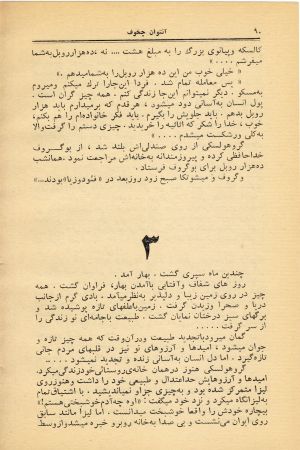 ۹۰ آنتوان چخوف
کالسکه وپیانوی بزرگ را به مبلغ هشت .... نه ، ده‌هزارروبل‌به‌شما
میفرشم .... »
« خیلی خوب من این ده هزار روبل‌را به‌شمامیدهم . »
« پس معامله تمام شد . فردا این‌جارا ترك میکنم ومیروم
به‌مسکو . دیگر نمیتوانم این‌جا زندگی کنم . همه چیز گران است .
پول انسان به‌آسانی دود میشود ، هرقدم که برمیدارم باید هزار
روبل بدهم . باید جلویش را بگیرم . باید فکر خانواده‌ام را هم بکنم،
خوب ، خدا را شکر که اثاثیه را خریدید . چیزی دستم را گرفت‌والا
به‌کلی ورشکست میشدم .... »
گروهولسکی از روی صندلی‌اش بلند شد ، از بوگروف
خداحافظی کرده و پیروزمندانه به‌خانه‌اش مراجعت نمود . همانشب
ده‌هزار روبل برای بوگروف فرستاد .
وگروف و میشوتکا صبح زود روزبعد در «فئودوزیا»بودند...»
۳
چندین ماه سپری گشت . بهار آمد .
روز های شفاف وآفتابی باآمدن بهار، فراوان گشت . همه
چیز در روی زمین زیبا و دلپذیر به‌نظرمیآمد . بادی گرم ازجانب
دریا و صحرا وزیدن گرفت . زمین‌باعلفهای تازه پوشیده شد و
برگهای سبز درختان نمایان گشت . طبیعت باجامه‌ای نو زندگی را
از سر گرفت .....
گمان میرودباتجدید طبیعت ودرآن‌وقت که همه چیز تازه و
جوان میشود ، امیدها و آرزوهای نو نیز در قلبهای مردم جانی
تازه‌گیرد . اما دل انسان به‌آسانی زنده و تجدید نمیشود....
گروهولسکی هنوز درهمان خانه‌ی‌روستائی‌خودزندگی‌میکرد.
امیدها و آرزوهایش حداعتدال و طبیعی خود را داشت وهنوزروی
لیزا متمرکز شده بود و به‌چیزی جزاو نمیاندیشید . با اشتیاق‌تمام
به‌لیزانگاه میکرد و نزد خود میگفت : «اوه چه‌آدم‌خوشبختی‌هستم!»
بیچاره خودش را واقعا خوشبخت میدانست . اما لیزا مانند سابق
روی ایوان می‌نشست و بی صدا به‌خانه روبرو خیره میشد‌واز‌وسط